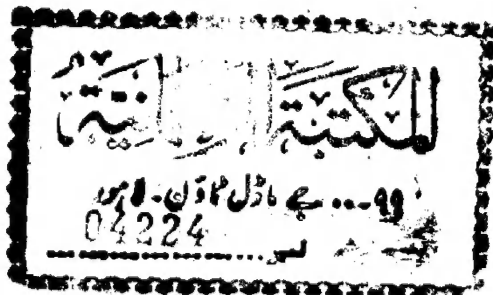 المكتبة
۹۹... جے ماڈل ٹاؤن۔ لاہور
04224
نمبر................